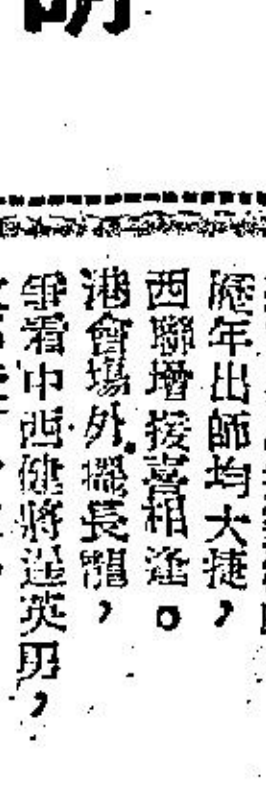 歷年出師均大捷，
西聯增援喜相逢。
港會場外擺長龍，
爭看中西健將逞英男，